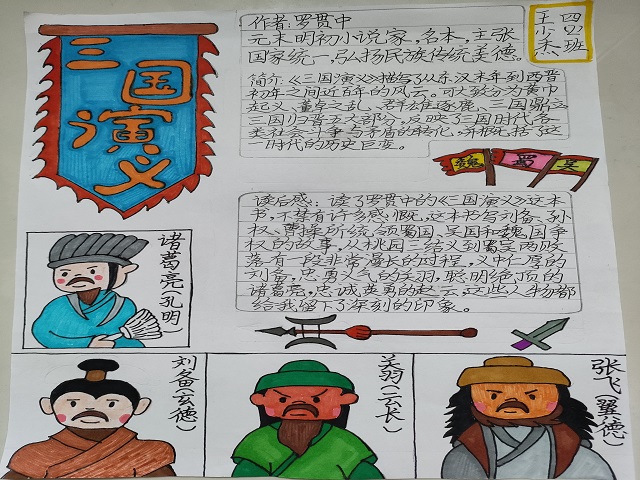 三国演义
作者:罗贯中
元末明初小说家,名本,主张
国家统一,弘扬民族传统美德。
四2班
王少杰
简介《三国演义》描写了从东汉末年到西晋
初年之间近百年的风云。可大致分为黄巾
起义、董卓之乱、群雄逐鹿、三国鼎立
三国归晋五大部分,反映了三国时代各
类社会斗争与矛盾的转化,并概括了这
一时代的历史巨变。
魏 蜀 吴
读后感:读了罗贯中的《三国演义》这本
书,不禁有许多感慨,这本书写刘备、孙
权、曹操所统领蜀国、吴国和魏国争
权的故事,从桃园三结义到蜀吴两败
落有一段非常漫长的过程,义中仁厚的
刘备,忠勇义气的关羽,聪明绝顶的
诸葛亮,忠诚英勇的赵云,这些人物都
给我留下了深刻的印象。
诸葛亮(孔明)
刘备(玄德)
关羽(云长)
张飞(翼德)